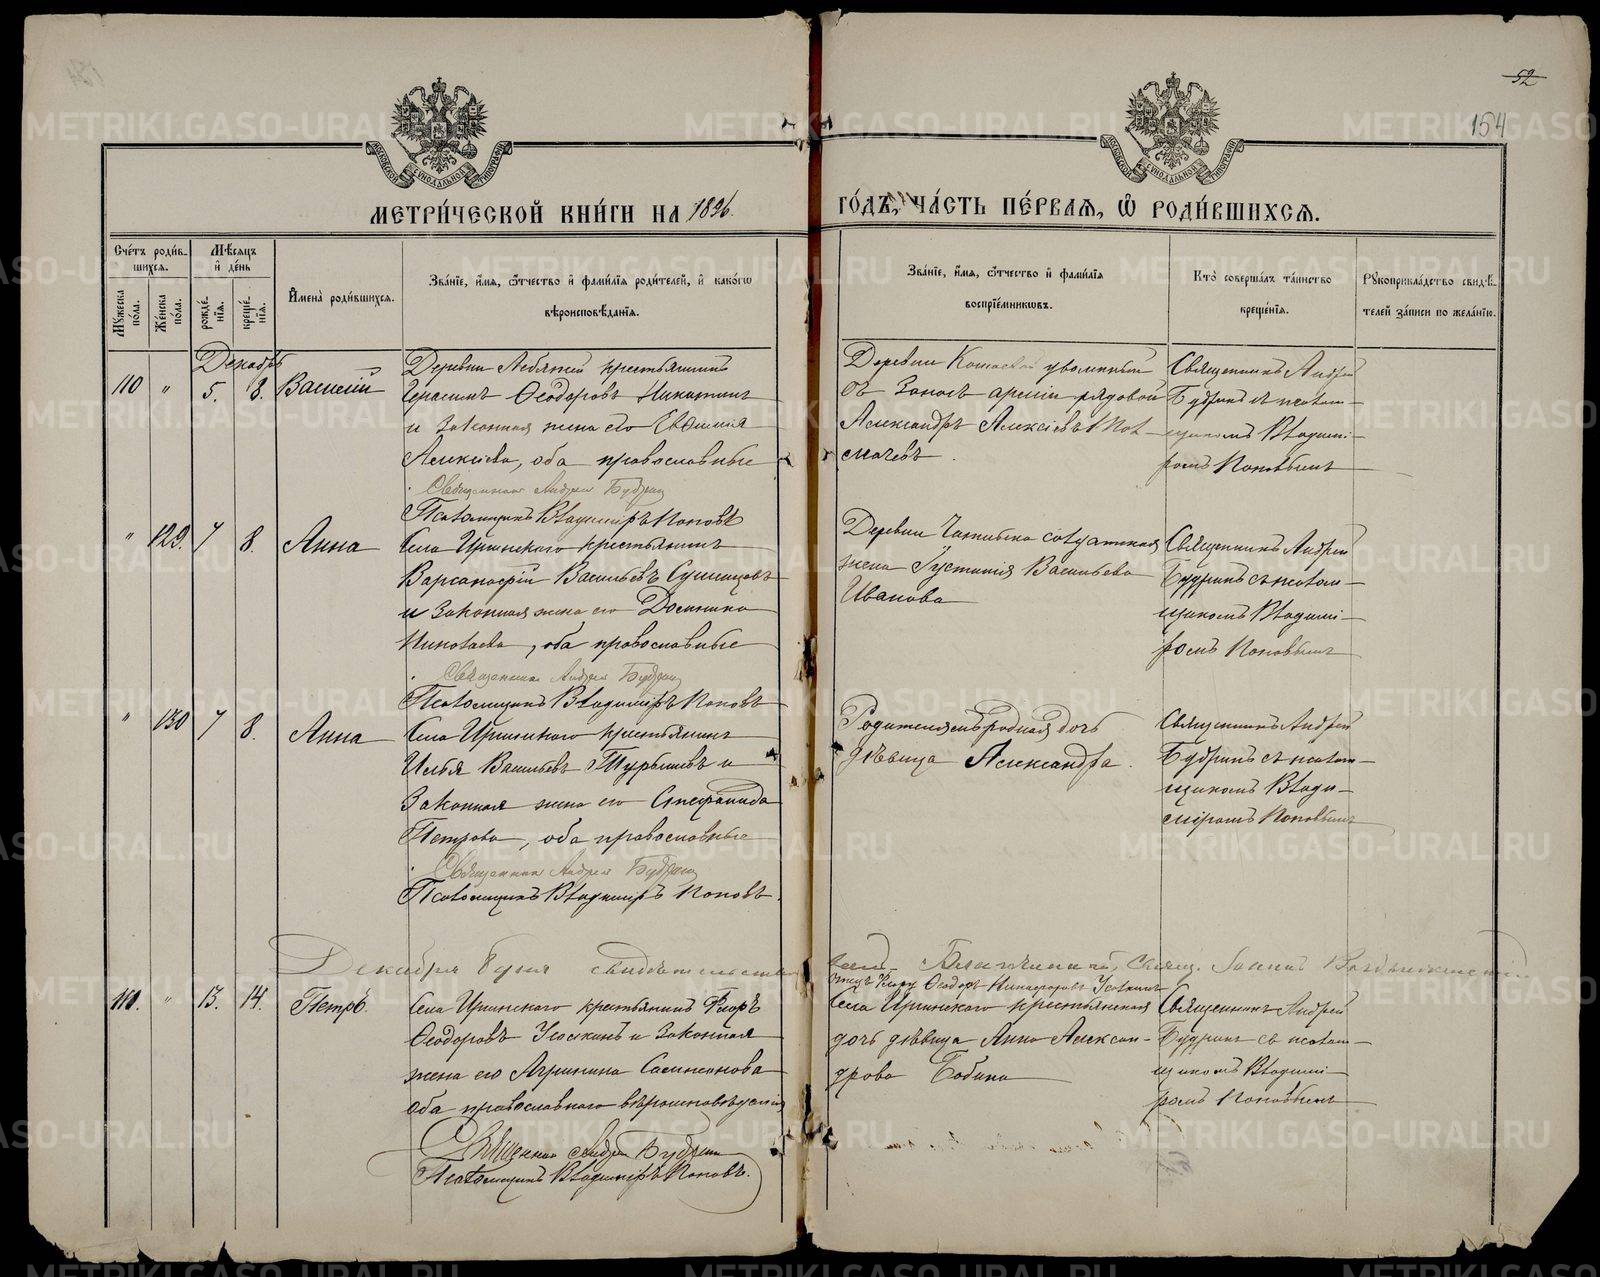 52
154
МЕТРИ́ЧЕСКОЙ КНИ́ГИ НА 1896. ГО́ДЪ, ЧА́СТЬ ПЕ́РВАЯ, Ѡ РОДИ́ВШИХСЯ.
Сче́тъ роди́в-
шихся.
Мѣ́сяцъ
и҆ де́нь
Мꙋ́жеска по́ла.
Же́нска по́ла.
рожде́нїя.
креще́нїя.
И҆мена̀ роди́вшихся.
Зва́нїе, и҆́мя, ѻ҆́тчество и҆ фами́лїя роди́телей, и҆ како́гѡ
вѣроисповѣ́данїя.
Зва́нїе, и҆́мя, ѻ҆́тчество и҆ фами́лїя
воспрїе́мникѡвъ.
Кто̀ соверша́лъ та́инство
креще́нїя.
Рꙋкоприкла́дство свидѣ́-
телей за́писи по жела́нїю.
Декабрь
110 " 5. 8. Василій
Деревни Лебяжей крестьянинъ
Герасимъ Ѳеодоровъ Никитинъ
и законная жена его Евѳимия
Алексіева, оба православные
Священникъ Андрей Будринъ
Псаломщикъ Владиміръ Поповъ
Деревни уволенный
въ запасъ арміи рядовой
Александръ Алексіевъ Тол-
мачевъ.
Священникъ Андрей
Будринъ съ псалом-
щикомъ Владимі-
ромъ Поповымъ
" 129. 7 8. Анна
Села Иргинскаго крестьянинъ
Варсанофій Васильевъ
и законная жена его Домника
Николаева, оба православные
Священникъ Андрей Будринъ
Псаломщикъ Владиміръ Поповъ
Деревни солдатская
жена Іустинія Васильева
Иванова
Священникъ Андрей
Будринъ съ псалом-
щикомъ Владимі-
ромъ Поповымъ
" 130 7 8. Анна
Села Иргинскаго крестьянинъ
Илья Васильевъ Турбиевъ и
законная жена его Стефанида
Петрова, оба православные
Священникъ Андрей Будринъ
Псаломщикъ Владиміръ Поповъ.
Родителямъ родная дочь
дѣвица Александра.
Священникъ Андрей
Будринъ съ псалом-
щикомъ Влади-
міромъ Поповымъ
Декабря 8 дня свидѣтельствовалъ Благочинный, Свящ. Іоаннъ
111. " 13. 14. Петръ.
Села Иргинскаго крестьянинъ Киръ
Ѳеодоровъ и законная
жена его Агрипина Сампсонова
оба православнаго вѣроисповѣданія
Священникъ Андрей Будринъ
Псаломщикъ Владиміръ Поповъ.
Отецъ Киру Ѳеодоръ Никифоровъ
Села Иргинскаго крестьянская
дочь дѣвица Анна Алексан-
дрова Бабина
Священникъ Андрей
Будринъ съ псалом-
щикомъ Владимі-
ромъ Поповымъ
METRIKI.GASO-URAL.RU